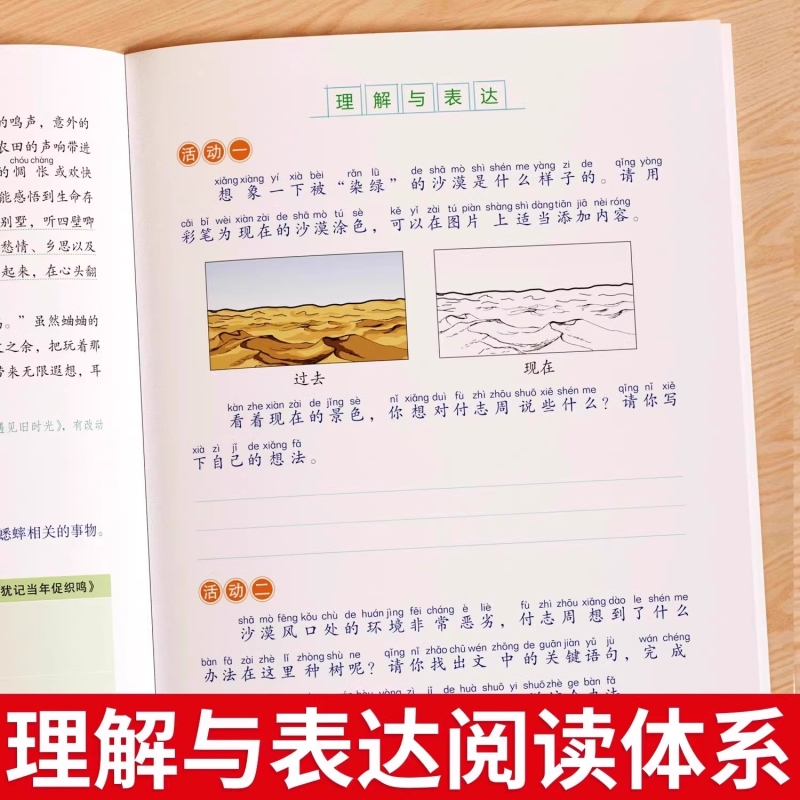 的鸣声，意外的
农田的声响带进
chóu chàng
的惆怅或欢快
能感悟到生命存
别墅，听四壁唧
愁情、乡思以及
起来，在心头翻
。”虽然蛐蛐的
之余，把玩着那
带来无限遐想，耳
遇见旧时光》，有改动
蟋蟀相关的事物。
犹记当年促织鸣》
理解与表达
活动一
xiǎng xiàng yí xià bèi rǎn lǜ de shā mò shì shén me yàng zi de qǐng yòng
想象一下被“染绿”的沙漠是什么样子的。请用
cǎi bǐ wèi xiàn zài de shā mò tú sè kě yǐ zài tú piàn shàng shì dàng tiān jiā nèi róng
彩笔为现在的沙漠涂色，可以在图片上适当添加内容。
过去
现在
kàn zhe xiàn zài de jǐng sè nǐ xiǎng duì fù zhì zhōu shuō xiē shén me qǐng nǐ xiě
看着现在的景色，你想对付志周说些什么？请你写
xià zì jǐ de xiǎng fǎ
下自己的想法。
活动二
shā mò fēng kǒu chù de huán jìng fēi cháng è liè fù zhì zhōu xiǎng dào le shén me
沙漠风口处的环境非常恶劣，付志周想到了什么
bàn fǎ zài zhè lǐ zhòng shù ne qǐng nǐ zhǎo chū wén zhōng de guān jiàn yǔ jù wán chéng
办法在这里种树呢？请你找出文中的关键语句，完成
yòng zì jǐ de huà shuō yi shuō zhè ge bàn fǎ
理解与表达阅读体系